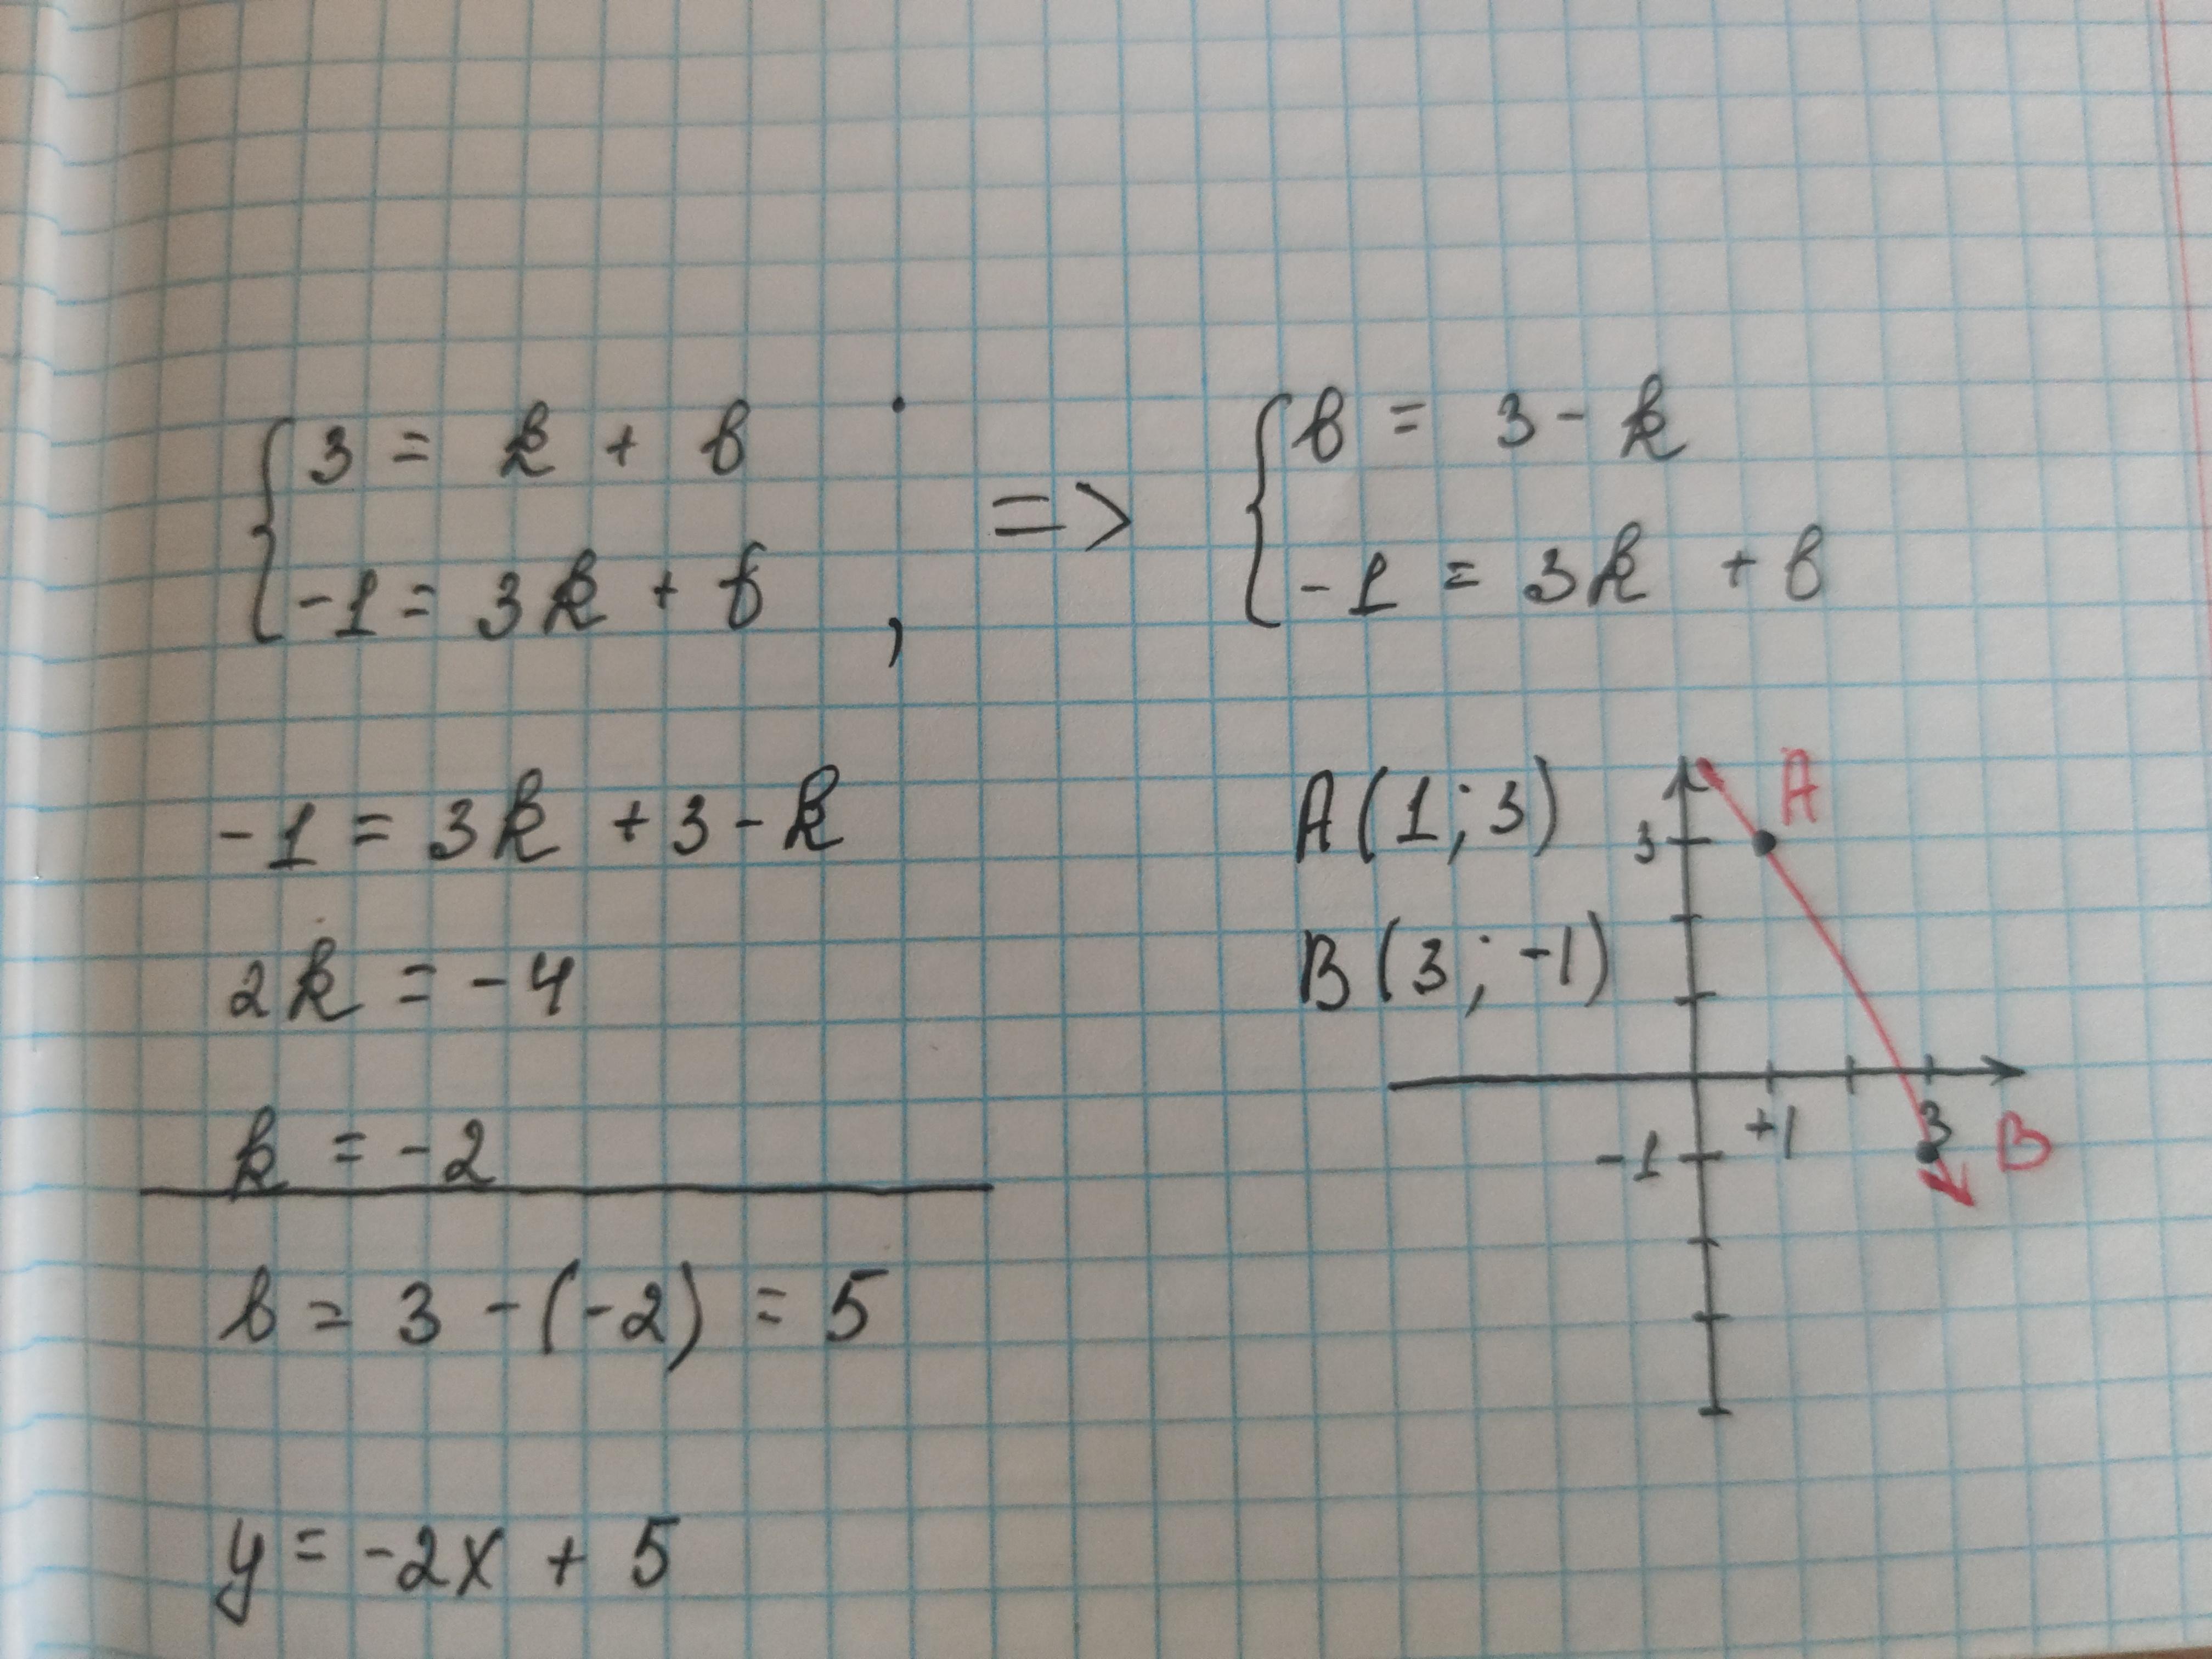 { 3 = k + b
{ -1 = 3k + b , => { b = 3 - k
{ -1 = 3k + b
-1 = 3k + 3 - k
2k = -4
k = -2
b = 3 - (-2) = 5
y = -2x + 5
A(1; 3)
B(3; -1)
A
3
+1
3
-1
B